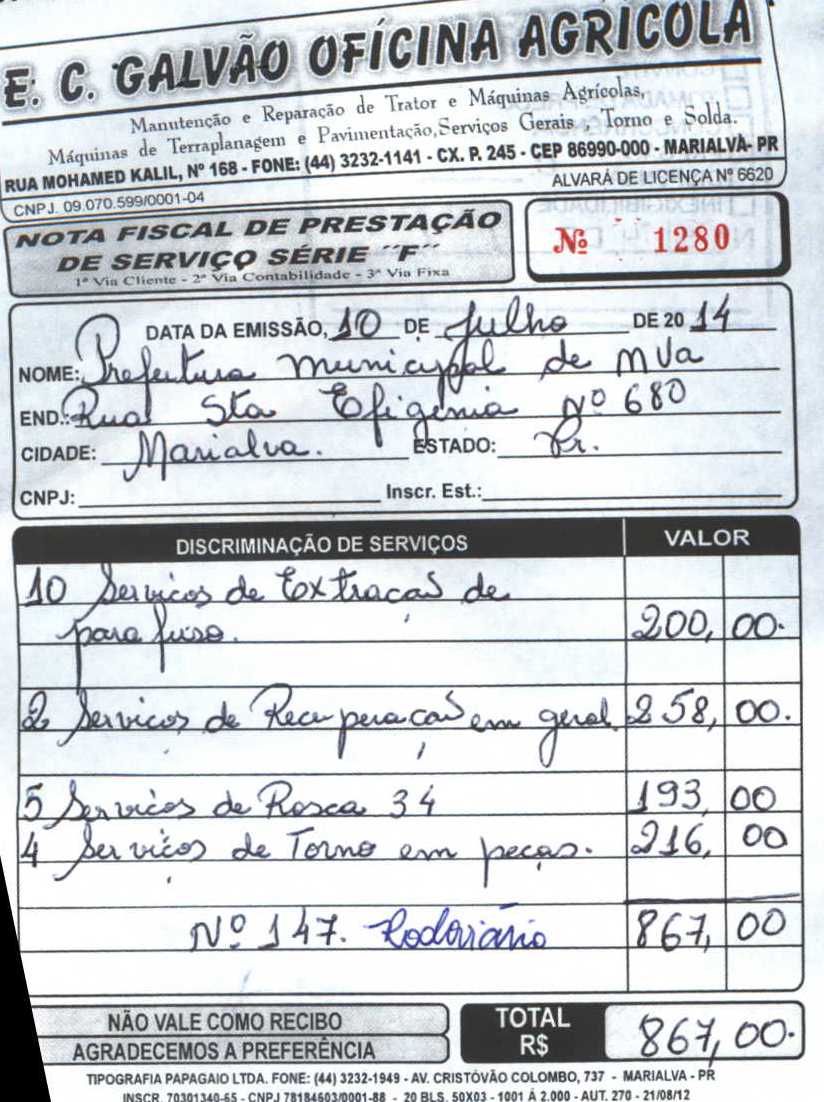 E. C. GALVÃO OFÍCINA AGRICOLA
Manutenção e Reparação de Trator e Máquinas Agrícolas,
Máquinas de Terraplanagem e Pavimentação,Serviços Gerais , Torno e Solda.
RUA MOHAMED KALIL, Nº 168 - FONE: (44) 3232-1141 - CX. P. 245 - CEP 86990-000 - MARIALVA- PR
CNPJ. 09.070.599/0001-04 ALVARÁ DE LICENÇA Nº 6620
NOTA FISCAL DE PRESTAÇÃO
DE SERVIÇO SÉRIE "F"
1ª Via Cliente - 2ª Via Contabilidade - 3ª Via Fixa
Nº 1280
DATA DA EMISSÃO, 10 DE Julho DE 20 14
NOME: Prefeitura Municipal de MVa
END.: Rua Sta Efigênia Nº 680
CIDADE: Marialva. ESTADO: Pr.
CNPJ: Inscr. Est.:
DISCRIMINAÇÃO DE SERVIÇOS VALOR
10 Servicos de Extracas de
parafuso. 200, 00.
2 Servicos de Recuperacas em geral 258, 00.
5 Servicos de Rosca 34 193, 00
4 Serviços de Torno em peças. 216, 00
Nº 147. Rodoviário 867, 00
NÃO VALE COMO RECIBO
AGRADECEMOS A PREFERÊNCIA
TOTAL
R$ 867,00.
TIPOGRAFIA PAPAGAIO LTDA. FONE: (44) 3232-1949 - AV. CRISTÓVÃO COLOMBO, 737 - MARIALVA - PR
INSCR. 70301340-65 - CNPJ 78184603/0001-88 - 20 BLS. 50X03 - 1001 Á 2.000 - AUT. 270 - 21/08/12